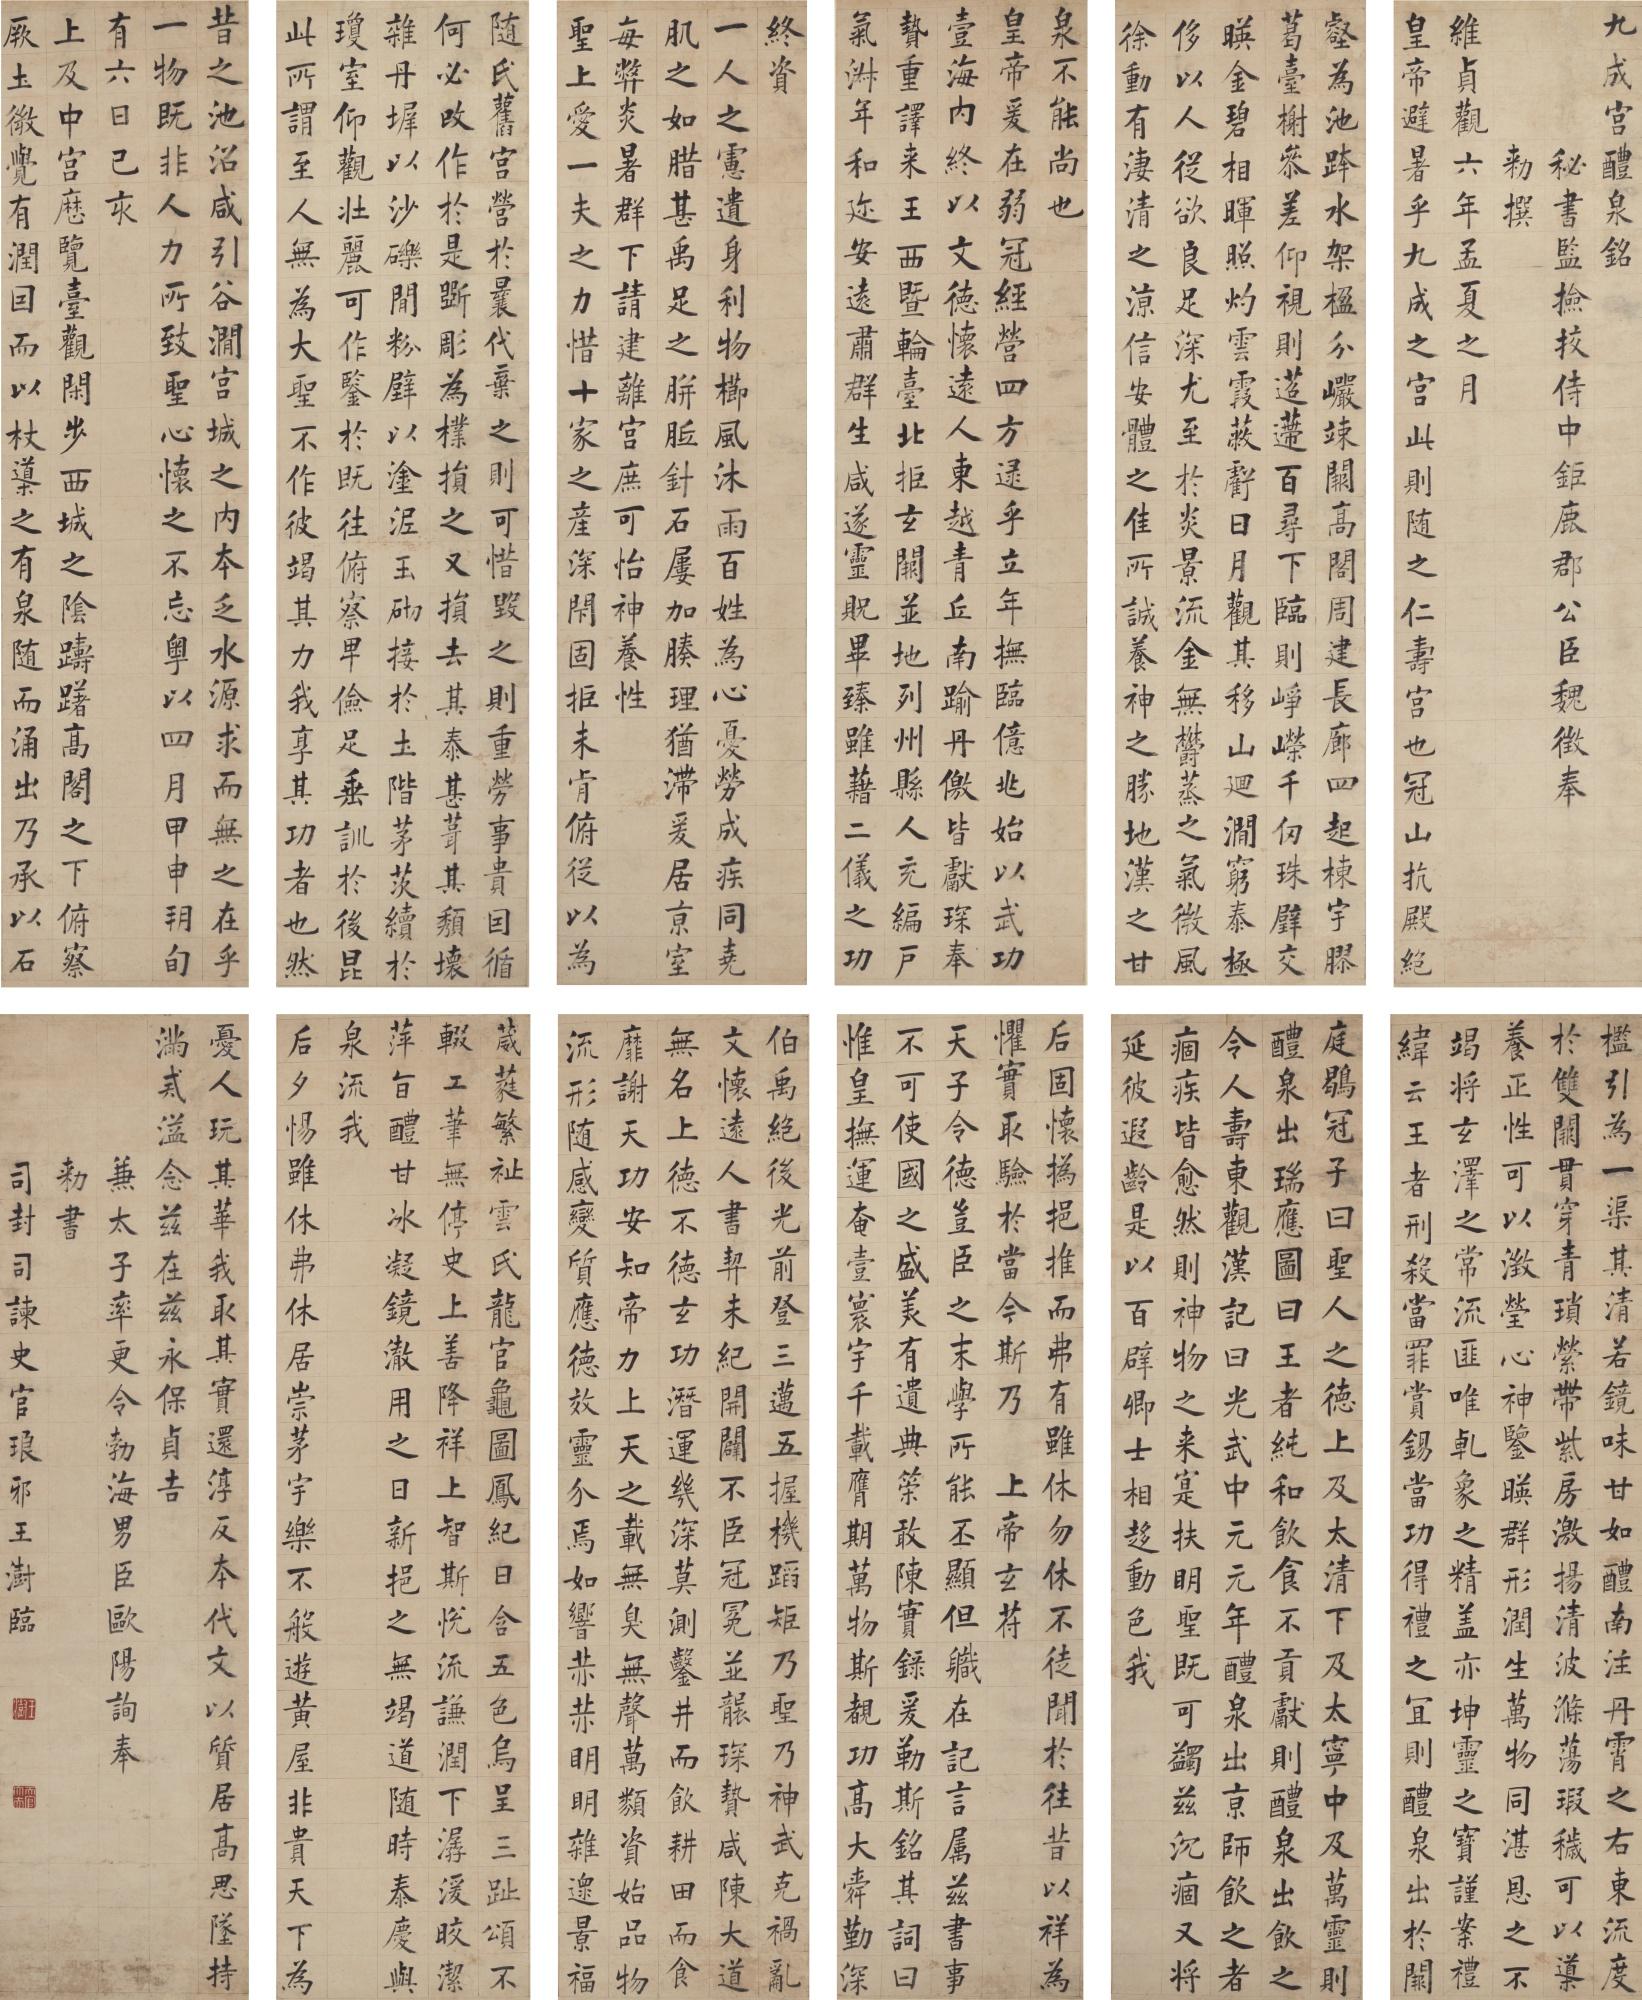 九成宮醴泉銘
秘書監撿挍侍中鉅鹿郡公臣魏徵奉
勑撰
維貞觀六年孟夏之月
皇帝避暑乎九成之宮此則随之仁壽宮也冠山抗殿絕
壑為池跨水架楹分巖竦闕高閣周建長廊四起棟宇膠
葛臺榭參差仰視則迢遰百尋下臨則崢嶸千仞珠璧交
暎金碧相暉照灼雲霞蔽虧日月觀其移山廻澗窮泰極
侈以人從欲良足深尤至於炎景流金無欝蒸之氣微風
徐動有淒清之涼信安體之佳所誠養神之勝地漢之甘
泉不能尚也
皇帝爰在弱冠經營四方逯乎立年撫臨億兆始以武功
壹海内終以文德懷遠人東越青丘南踰丹儌皆獻琛奉
贄重譯来王西暨輪臺北拒玄闕並地列州縣人充編戶
氣淋年和迩安遠肅群生咸遂靈貺畢臻雖藉二儀之功
終資
一人之慮遺身利物櫛風沐雨百姓為心憂勞成疾同堯
肌之如腊甚禹足之胼胝針石屢加腠理猶滯爰居京室
每弊炎暑群下請建離宮庶可怡神養性
聖上愛一夫之力惜十家之產深閇固拒未肯俯從以為
随氏舊宮營於曩代棄之則可惜毀之則重勞事貴因循
何必改作於是斲彫為樸損之又損去其泰甚葺其頹壞
雜丹墀以沙礫間粉壁以塗泥玉砌接於土階茅茨續於
瓊室仰觀壯麗可作鑒於既往俯察卑儉足垂訓於後昆
此所謂至人無為大聖不作彼竭其力我享其功者也然
昔之池沼咸引谷澗宮城之内本乏水源求而無之在乎
一物既非人力所致聖心懷之不忘粤以四月甲申朔旬
有六日己亥
上及中宮歷覽臺觀閑步西城之陰躊躇高閣之下俯察
厥土微覺有潤因而以杖導之有泉随而涌出乃承以石
檻引為一渠其清若鏡味甘如醴南注丹霄之右東流度
於雙闕貫穿青瑣縈帶紫房激揚清波滌蕩瑕穢可以導
養正性可以澂瑩心神鑒暎群形潤生萬物同湛恩之不
竭将玄澤之常流匪唯乹象之精盖亦坤靈之寶謹案禮
緯云王者刑殺當罪賞錫當功得禮之宜則醴泉出於闕
庭鶡冠子曰聖人之德上及太清下及太寧中及萬靈則
醴泉出瑞應圖曰王者純和飲食不貢獻則醴泉出飲之
令人壽東觀漢記曰光武中元元年醴泉出京師飲之者
痼疾皆愈然則神物之来寔扶明聖既可蠲茲沉痼又将
延彼遐齡是以百辟卿士相趍動色我
后固懷撝挹推而弗有雖休勿休不徒聞於往昔以祥為
懼實取驗於當今斯乃　上帝玄苻
天子令德豈臣之末學所能丕顯但職在記言属茲書事
不可使國之盛美有遺典策敢陳實錄爰勒斯銘其詞曰
惟皇撫運奄壹寰宇千載膺期萬物斯覩功高大舜勤深
伯禹絕後光前登三邁五握機蹈矩乃聖乃神武克禍亂
文懷遠人書契未紀開闢不臣冠冕並襲琛贄咸陳大道
無名上德不德玄功潛運幾深莫測鑿井而飲耕田而食
靡謝天功安知帝力上天之載無臭無聲萬類資始品物
流形随感變質應德效靈介焉如響赫赫明明雜遝景福
葳蕤繁祉雲氏龍官龜圖鳳紀日含五色烏呈三趾頌不
輟工筆無停史上善降祥上智斯悅流謙潤下潺湲皎潔
萍旨醴甘冰凝鏡澈用之日新挹之無竭道随時泰慶與
泉流我
后夕惕雖休弗休居崇茅宇樂不般遊黃屋非貴天下為
憂人玩其華我取其實還淳反本代文以質居高思墜持
滿戒溢念茲在茲永保貞吉
兼太子率更令勃海男臣歐陽詢奉
勑書
司封司諫史官琅邪王澍臨